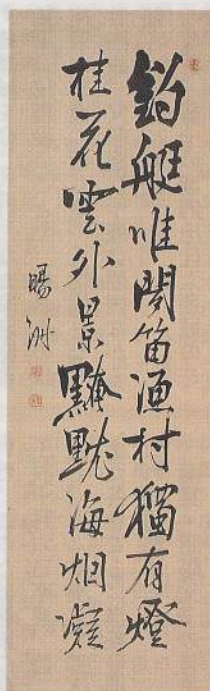 釣艇唯聞笛漁村獨有燈
桂花雲外景黤黮海烟凝